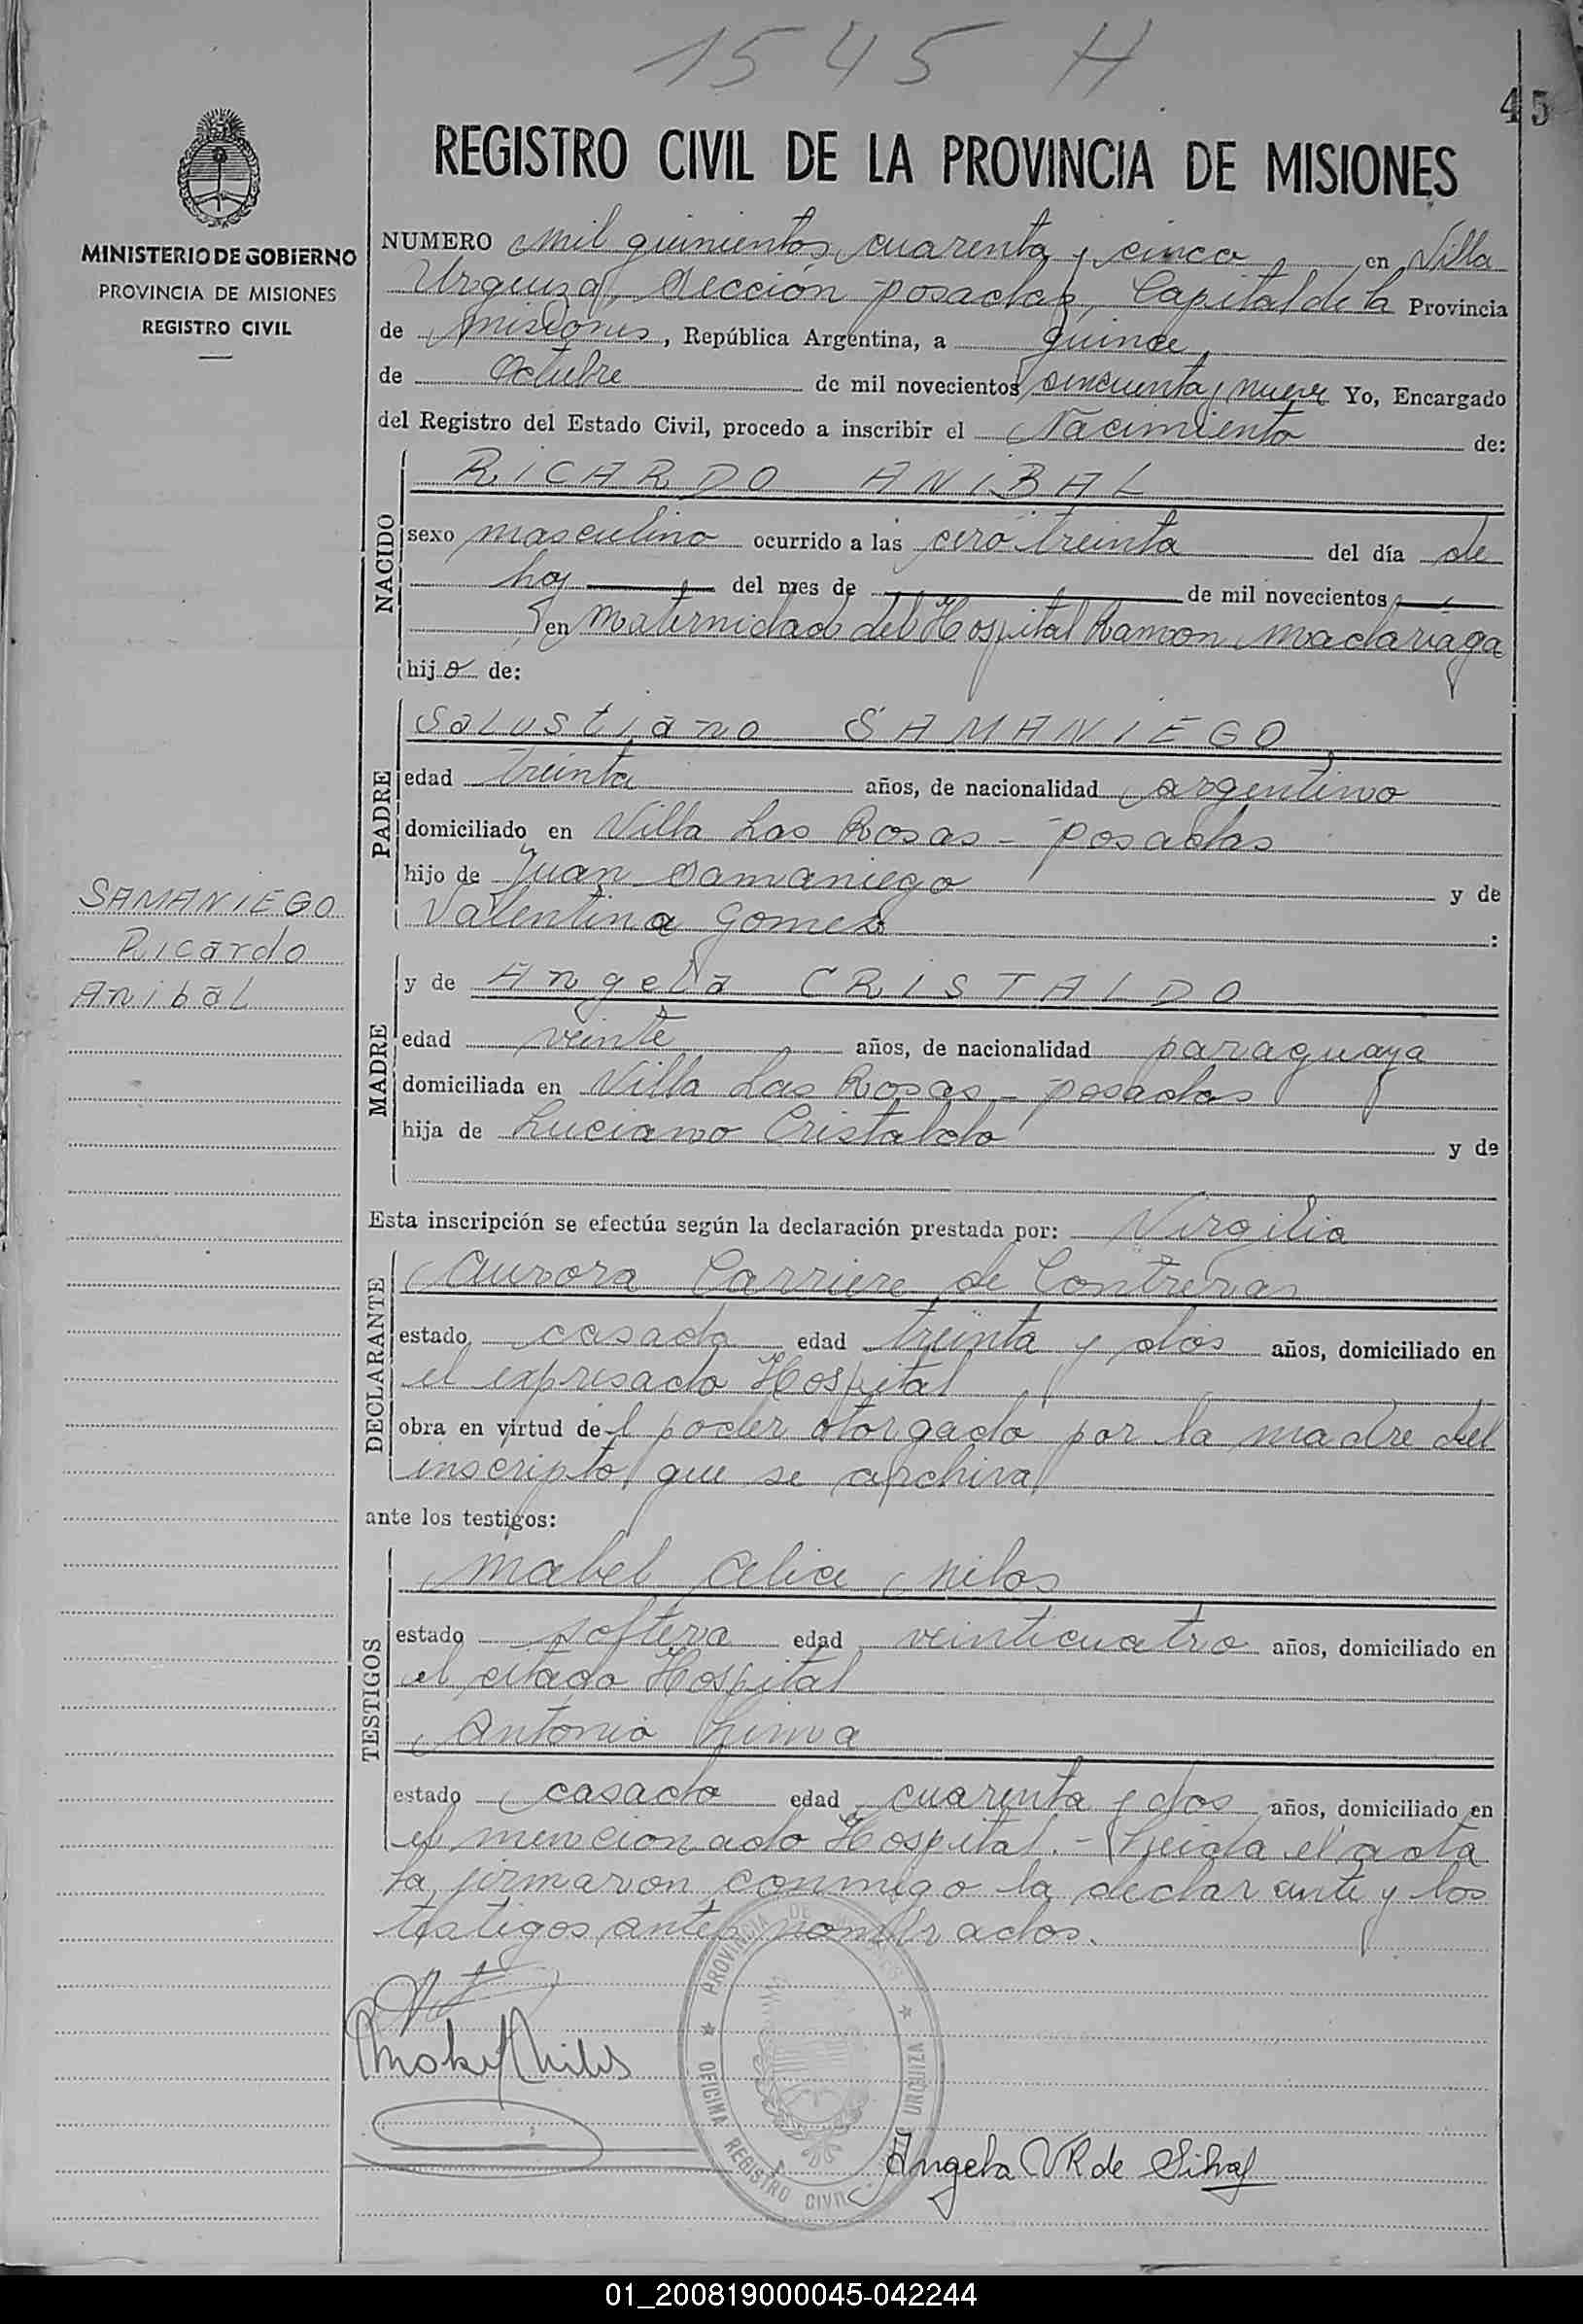 1545 H
45
REGISTRO CIVIL DE LA PROVINCIA DE MISIONES
MINISTERIO DE GOBIERNO
PROVINCIA DE MISIONES
REGISTRO CIVIL
NUMERO mil quinientos cuarenta y cinco en Villa
Urquiza, Sección Posadas, Capital de la Provincia
de Misiones, República Argentina, a quince
de Octubre de mil novecientos cincuenta y nueve Yo, Encargado
del Registro del Estado Civil, procedo a inscribir el Nacimiento de:
NACIDO
RICARDO ANIBAL
sexo masculino ocurrido a las cero treinta del día de
hoy del mes de de mil novecientos
en Maternidad del Hospital Ramon Madariaga
hijo de:
PADRE
Salustiano SAMANIEGO
edad treinta años, de nacionalidad argentino
domiciliado en Villa Las Rosas - Posadas
hijo de Juan Samaniego y de
Valentina Gomez :
SAMANIEGO
Ricardo
Anibal
MADRE
y de Angela CRISTALDO
edad veinte años, de nacionalidad paraguaya
domiciliada en Villa Las Rosas - Posadas
hija de Luciano Cristaldo y de
Esta inscripción se efectúa según la declaración prestada por: Virgilia
DECLARANTE
Aurora Carriere de Contreras
estado casada edad treinta y dos años, domiciliado en
el expresado Hospital
obra en virtud del poder otorgado por la madre del
inscripto, que se archiva
ante los testigos:
TESTIGOS
Mabel Celia Milos
estado soltera edad veinticuatro años, domiciliado en
el citado Hospital
Antonio Lima
estado casado edad cuarenta y dos años, domiciliado en
el mencionado Hospital. - Leida el acta
la firmaron conmigo la declarante y los
testigos antes nombrados.
PROVINCIA DE MISIONES
OFICINA REGISTRO CIVIL
URQUIZA
Angela VR de Silva
01_200819000045-042244